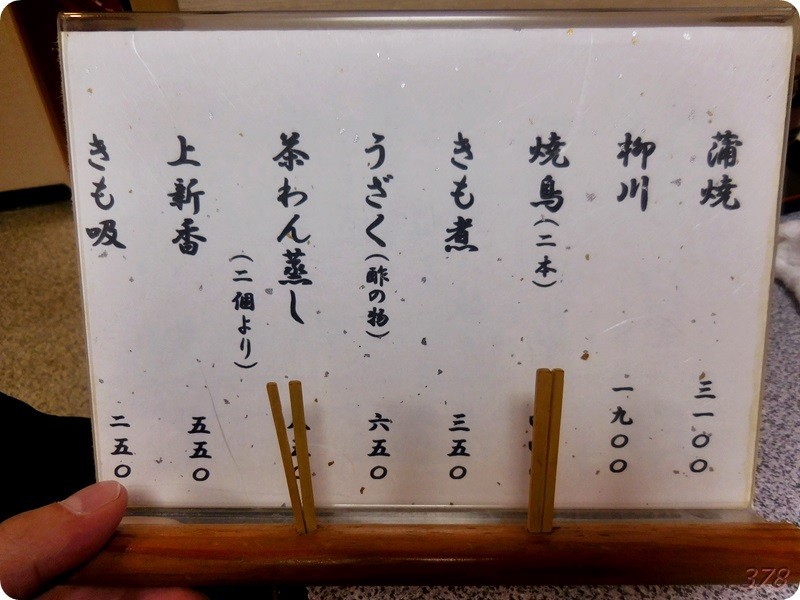 蒲焼 三一〇〇
柳川 一九〇〇
焼鳥(二本)
きも煮 三五〇
うざく(酢の物) 六五〇
茶わん蒸し
(二個より)
上新香 五五〇
きも吸 二五〇
378